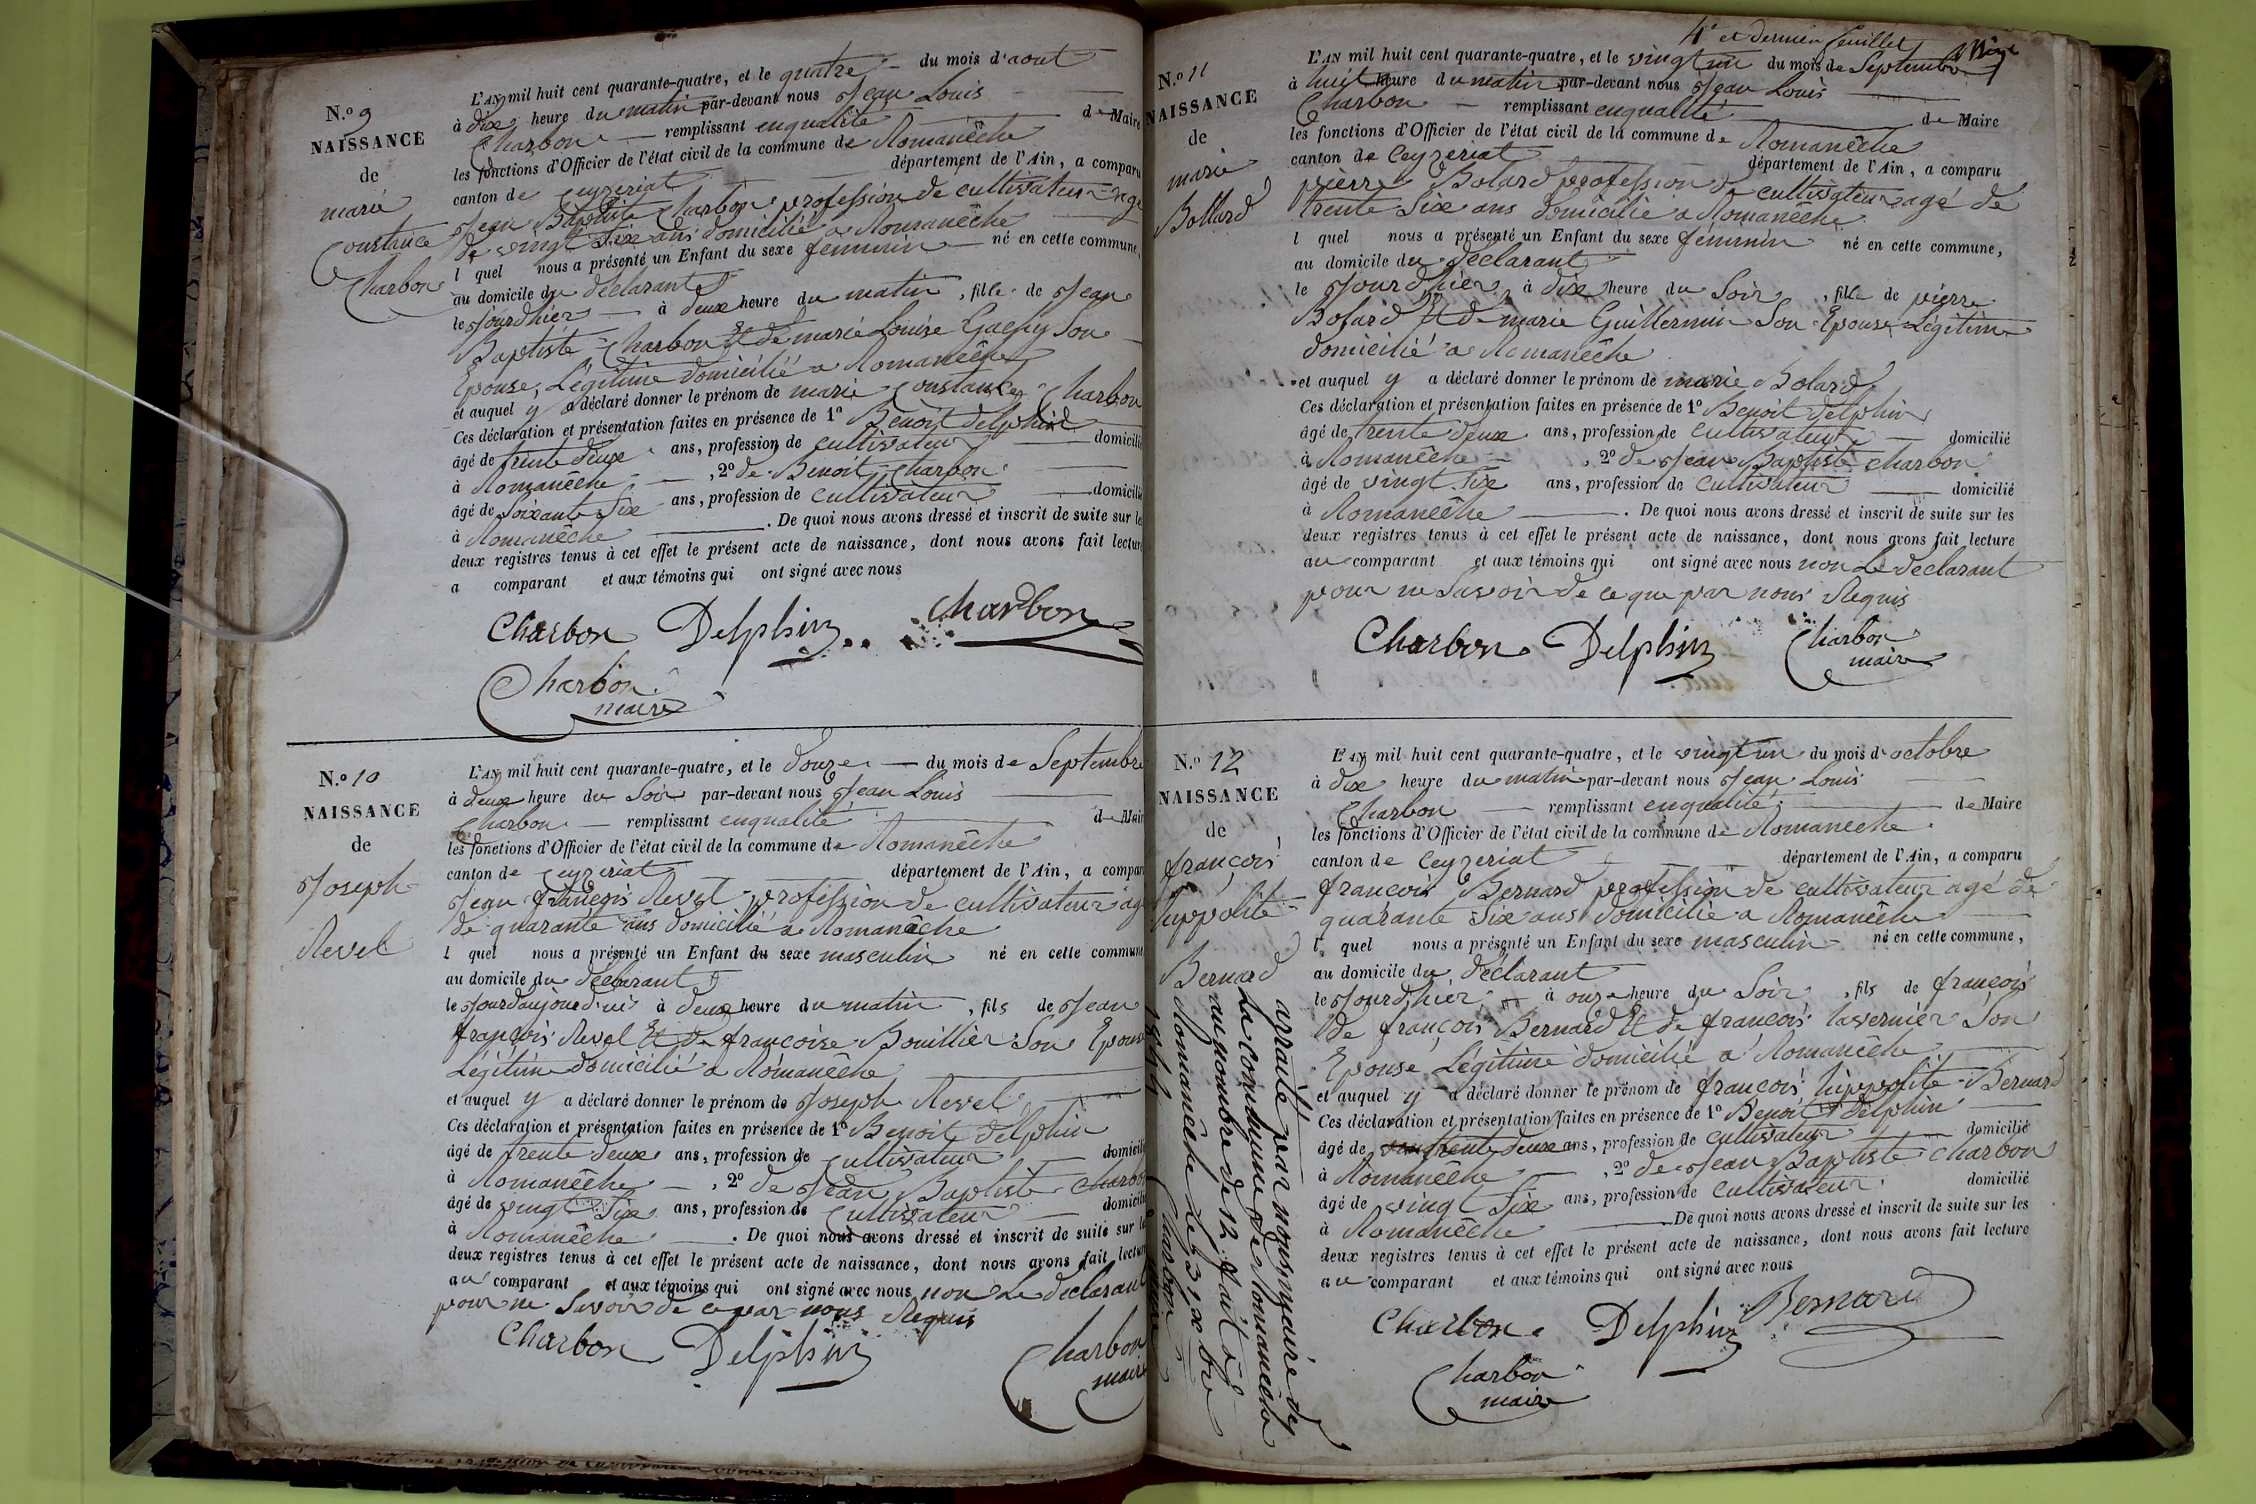 N.º 9
NAISSANCE
de
marie
Constance
Charbon
L'AN mil huit cent quarante-quatre, et le quatre du mois d'aout
à dix heure du matin par-devant nous Jean Louis
Charbon remplissant enqualité de Maire
les fonctions d'Officier de l'état civil de la commune de Romanêche
canton de Ceyzeriat département de l'Ain, a comparu
Jean Baptiste Charbon profession de cultivateur agé
de vingt Six ans domicilié a Romanêche
l quel nous a présenté un Enfant du sexe féminin né en cette commune,
au domicile du déclarant
le Jourdhier à deux heure du matin, fille de Jean
Baptiste Charbon Et de marie Louise Gachy Son
Epouse, Légitime domicilié a Romanêche
et auquel y a déclaré donner le prénom de marie Constance Charbon
Ces déclaration et présentation faites en présence de 1º Benoit Delphin
âgé de trente deux ans, profession de cultivateur domicilié
à Romanêche, 2º de Benoit Charbon
âgé de Soixante Six ans, profession de cultivateur domicilié
à Romanêche. De quoi nous avons dressé et inscrit de suite sur les
deux registres tenus à cet effet le présent acte de naissance, dont nous avons fait lecture
a comparant et aux témoins qui ont signé avec nous
Charbon Delphin Charbon
Charbon
maire
N.º 10
NAISSANCE
de
Joseph
Revel
L'AN mil huit cent quarante-quatre, et le douze du mois de Septembre
à deux heure du Soir par-devant nous Jean Louis
Charbon remplissant enqualité de Maire
les fonctions d'Officier de l'état civil de la commune de Romanêche
canton de Ceyzeriat département de l'Ain, a comparu
Jean françois Revel profession de cultivateur agé
de quarante ans domicilié a Romanêche
l quel nous a présenté un Enfant du sexe masculin né en cette commune
au domicile du déclarant
le Jourdaujourd'hui à deux heure du matin, fils de Jean
françois Revel Et de françoise Bouillier Son Epouse
Légitime domicilié a Romanêche
et auquel y a déclaré donner le prénom de Joseph Revel
Ces déclaration et présentation faites en présence de 1º Benoit Delphin
âgé de trente deux ans, profession de cultivateur domicilié
à Romanêche, 2º de Jean Baptiste Charbon
âgé de vingt Six ans, profession de Cultivateur domicilié
à Romanêche. De quoi nous avons dressé et inscrit de suite sur les
deux registres tenus à cet effet le présent acte de naissance, dont nous avons fait lecture
au comparant et aux témoins qui ont signé avec nous non Le déclarant
pour ne Savoir de ce par nous Requis
Charbon Delphin Charbon
maire
4e et dernier feuillet
N.º 11
NAISSANCE
de
marie
Bollard
L'AN mil huit cent quarante-quatre, et le vingt un du mois de Septembre
à huit heure du matin par-devant nous Jean Louis
Charbon remplissant enqualité de Maire
les fonctions d'Officier de l'état civil de la commune de Romanêche
canton de Ceyzeriat département de l'Ain, a comparu
pierre Bolard profession de cultivateur agé de
trente Six ans domicilié a Romanêche
l quel nous a présenté un Enfant du sexe féminin né en cette commune,
au domicile du déclarant
le Jourdhier à dix heure du Soir, fille de pierre
Bolard Et de marie Guillermin Son Epouse Légitime
domicilié a Romanêche
et auquel y a déclaré donner le prénom de marie Bolard
Ces déclaration et présentation faites en présence de 1º Benoit Delphin
âgé de trente deux ans, profession de Cultivateur domicilié
à Romanêche, 2º de Jean Baptiste Charbon
âgé de vingt Six ans, profession de Cultivateur domicilié
à Romanêche. De quoi nous avons dressé et inscrit de suite sur les
deux registres tenus à cet effet le présent acte de naissance, dont nous avons fait lecture
au comparant et aux témoins qui ont signé avec nous non Le déclarant
pour ne Savoir de ce que par nous Requis
Charbon Delphin Charbon
maire
N.º 12
NAISSANCE
de
françois
hippolite
Bernard
L'AN mil huit cent quarante-quatre, et le vingt un du mois d'octobre
à dix heure du matin par-devant nous Jean Louis
Charbon remplissant enqualité de Maire
les fonctions d'Officier de l'état civil de la commune de Romanêche
canton de Ceyzeriat département de l'Ain, a comparu
françois Bernard profession de cultivateur agé de
quarante Six ans domicilié a Romanêche
l quel nous a présenté un Enfant du sexe masculin né en cette commune,
au domicile du déclarant
le Jourdhier à onze heure du Soir, fils de françois
de françois Bernard Et de françois tavernier Son
Epouse Légitime domicilié a Romanêche
et auquel y a déclaré donner le prénom de françois hippolite Bernard
Ces déclaration et présentation faites en présence de 1º Benoit Delphin
âgé de trente deux ans, profession de Cultivateur domicilié
à Romanêche, 2º de Jean Baptiste Charbon
âgé de vingt Six ans, profession de Cultivateur domicilié
à Romanêche. De quoi nous avons dressé et inscrit de suite sur les
deux registres tenus à cet effet le présent acte de naissance, dont nous avons fait lecture
au comparant et aux témoins qui ont signé avec nous
Charbon Delphin Bernard
Charbon
maire
arraité par nous maire de
La commune de Romanêche
au nombre de 12 fait a
Romanêche le 31 xbre
1844 Charbon maire